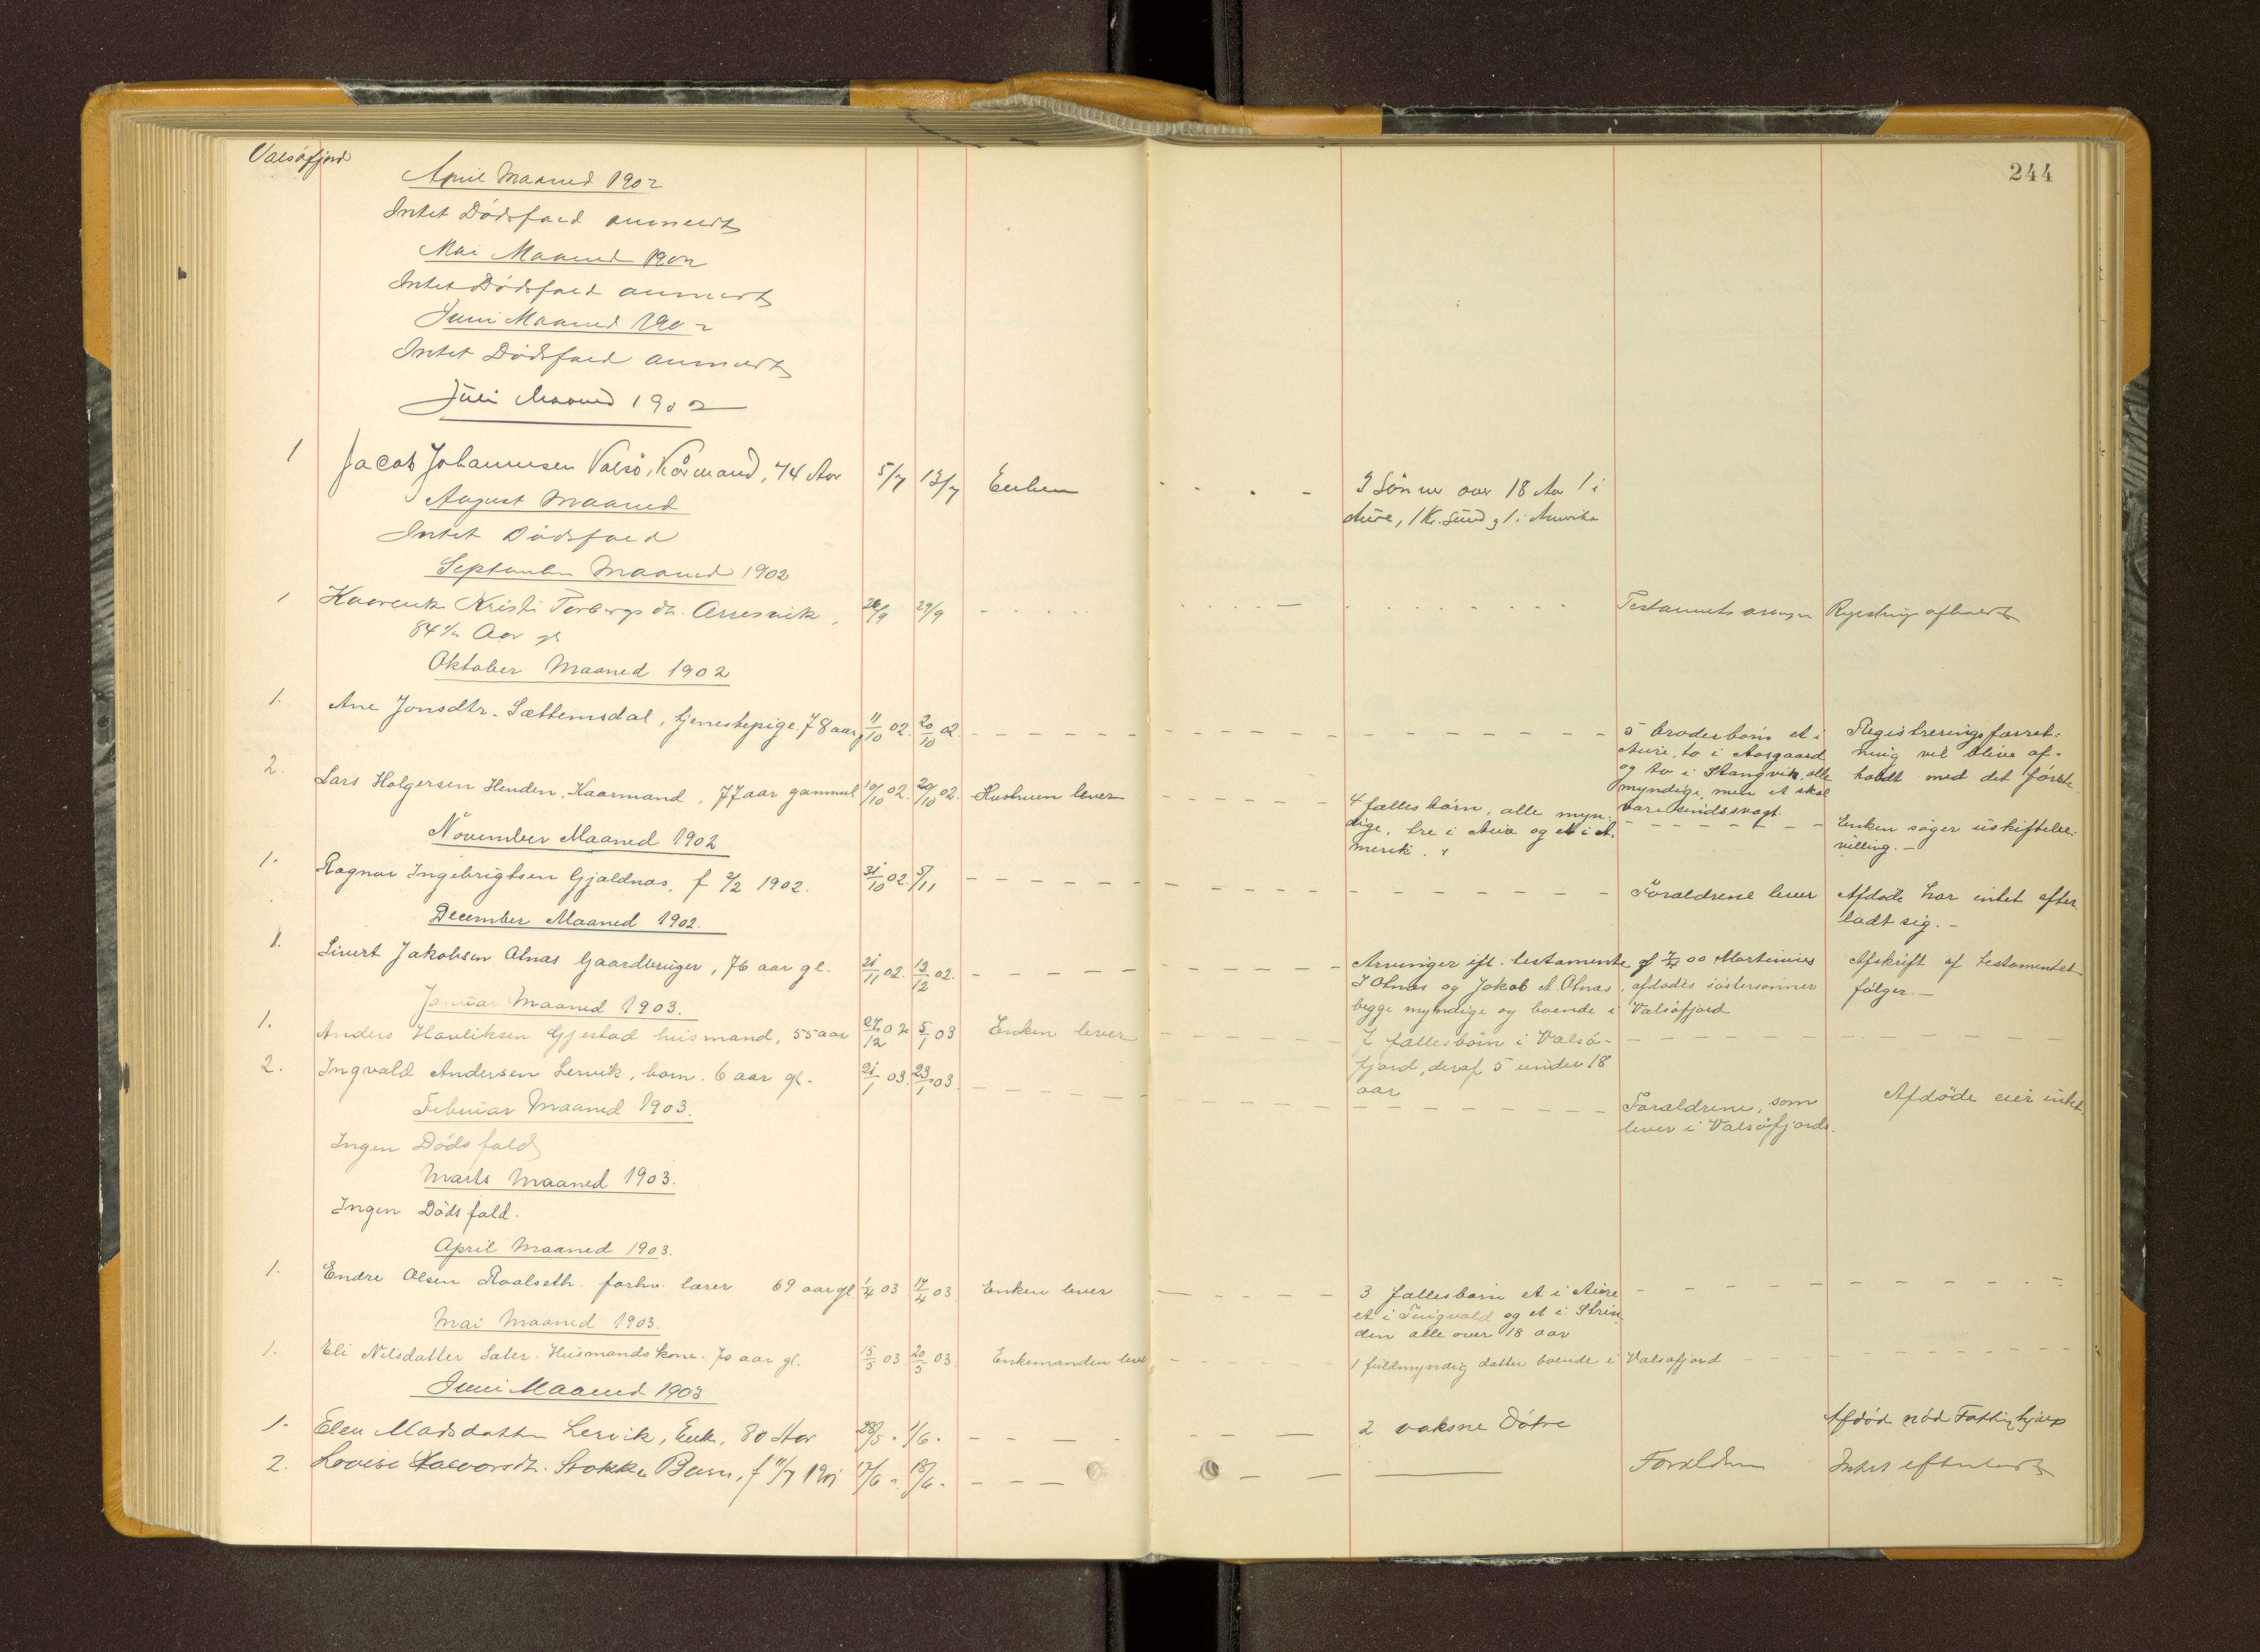 Valsøfjord
244
April Maaned 1902
Intet Dødsfald anmeldt
Mai Maaned 1902
Intet Dødsfald anmeldt
Juni Maaned 1902
Intet Dødsfald anmeldt
Juli Maaned 1902
1 Jacob Johannesen Valsø, Kårmand, 74 Aar 5/7 13/7 Enken 3 Sønner over 18 Aar 1 i
Aure, 1 Kr.sund og 1 i Amerika
August Maaned
Intet Dødsfald
September Maaned 1902
1 Kaarenke Kristi Torbergsdtr. Arresvik, 26/9 29/9 Testaments Registrering afholdt
84 1/2 Aar gl
Oktober Maaned 1902
1. Ane Jonsdtr. Sættemsdal, tjenestepige 78 aar, 11/10 02. 20/10 02. 5 broderbørn et i Registreringsforret-
Aure, to i Aasgaard ning vil blive af-
og to i Stangvik, alle holdt med det første.
myndige, men et skal
være sindssvagt.
2. Lars Holgersen Henden, Kaarmand, 77 aar gammel 10/10 02. 20/10 02. Hustruen lever 4 fælles børn, alle myn- Enken søger uskiftebe-
dige, tre i Aure og et i A- villing. –
merik.
November Maaned 1902
1. Ragnar Ingebrigtsen Gjeldnæs, f 2/2 1902. 31/10 02. 5/11 Forældrene lever Afdøde har intet efter
ladt sig. –
December Maaned 1902.
1. Sivert Jakobsen Alnæs Gaardbruger, 76 aar gl. 21/11 02. 13/12 02. Arvinger ifl. testamente af 7/4 00 Martinius Afskrift af testamentet
J Alnæs og Jakob A. Alnæs, afdødes søstersønner følger. –
begge myndige og boende i Valsøfjord
Januar Maaned 1903.
1. Anders Havliksen Gjestad husmand, 55 aar 27/12 02 5/1 03 Enken lever 7 fællesbørn i Valsø-
fjord, deraf 5 under 18
aar
2. Ingvald Andersen Lervik, barn. 6 aar gl. 21/1 03. 23/1 03. Forældrene, som Afdøde eier intet.
lever i Valsøfjord.
Februar Maaned 1903.
Ingen Dødsfald
Marts Maaned 1903.
Ingen Dødsfald.
April Maaned 1903.
1. Endre Olsen Roalseth. forhv. lærer 69 aar gl. 1/4 03 17/4 03. Enken lever 3 fællesbørn et i Aure
et i Tingvold og et i Strin
den alle over 18 aar
Mai Maaned 1903.
1. Eli Nilsdatter Sæter. Husmandskone. 70 aar gl. 15/5 03. 20/5 03. Enkemanden lever 1 fuldmyndig datter boende i Valsøfjord
Juni Maaned 1903
1. Elen Madsdatter Lervik, Enke, 80 Aar 28/5. 1/6. 2 voksne Døtre Afdøde nød Fattighjælp
2. Lovise Halvorsdtr. Stokke Barn, f 11/7 1901 17/6. 18/6. Forældrene Intet efterladt